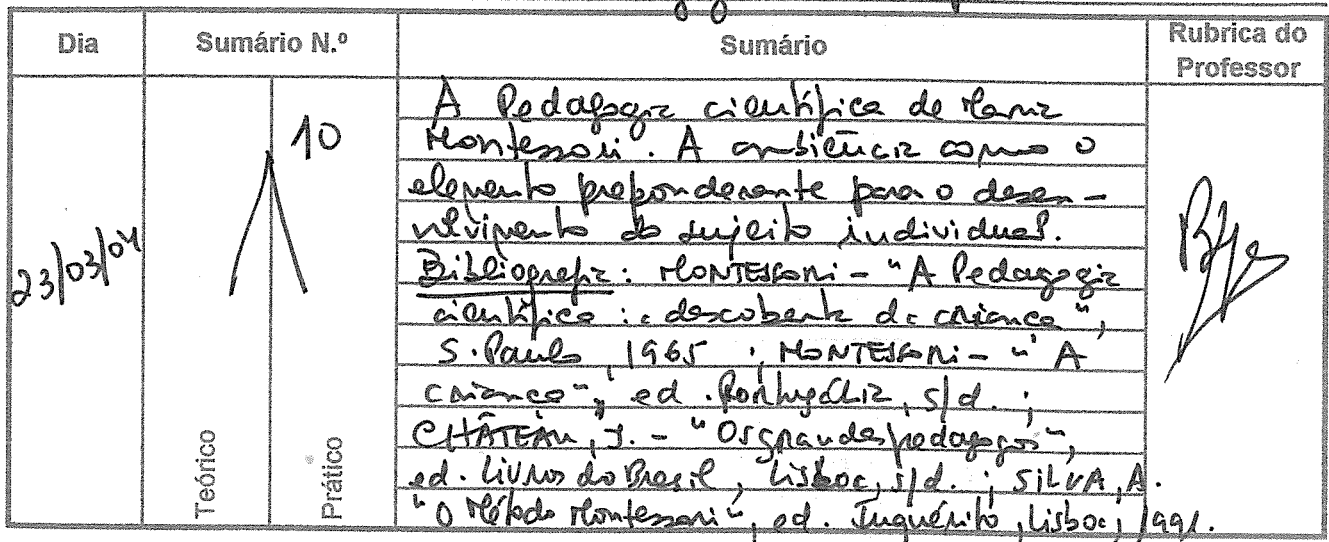 Dia
Sumário N.º
Sumário
Rubrica do
Professor
23/03/04
10
Teórico
Prático
A Pedagogia científica de Maria
Montessori. A ambiência como o
elemento preponderante para o desen-
volvimento do sujeito individual.
Bibliografia: MONTESSORI - "A Pedagogia
científica: a descoberta da criança",
S. Paulo, 1965; MONTESSORI - "A
criança", ed. Portugália, s/d.;
CHÂTEAU, J. - "Os grandes pedagogos",
ed. Livros do Brasil, Lisboa, s/d.; SILVA, A.
"O Método Montessori", ed. Inquérito, Lisboa, 1991.